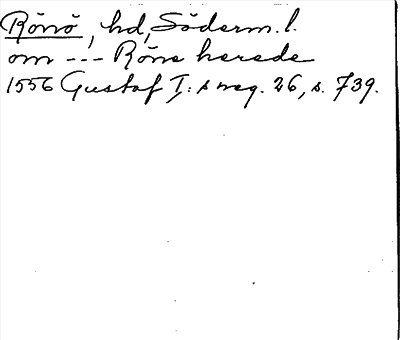 Rönö, hd, Söderm. l.
om --- Röne herede
1556 Gustaf I: s reg. 26, s. 739.